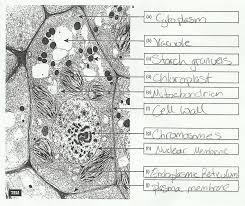 (a) Cytoplasm
(b) Vacuole
(c) Starch granules
(d) Chloroplast
(e) Mitochondrion
(f) Cell Wall
(g) Chromosomes
(h) Nuclear Membrane
(i) Endoplasmic Reticulum
(j) plasma membrane
TEM